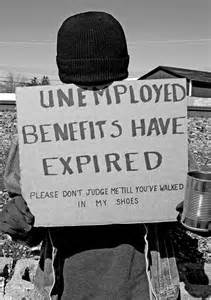 UNEMPLOYED
BENEFITS HAVE
EXPIRED
PLEASE DON'T JUDGE ME TILL YOU'VE WALKED
IN MY SHOES